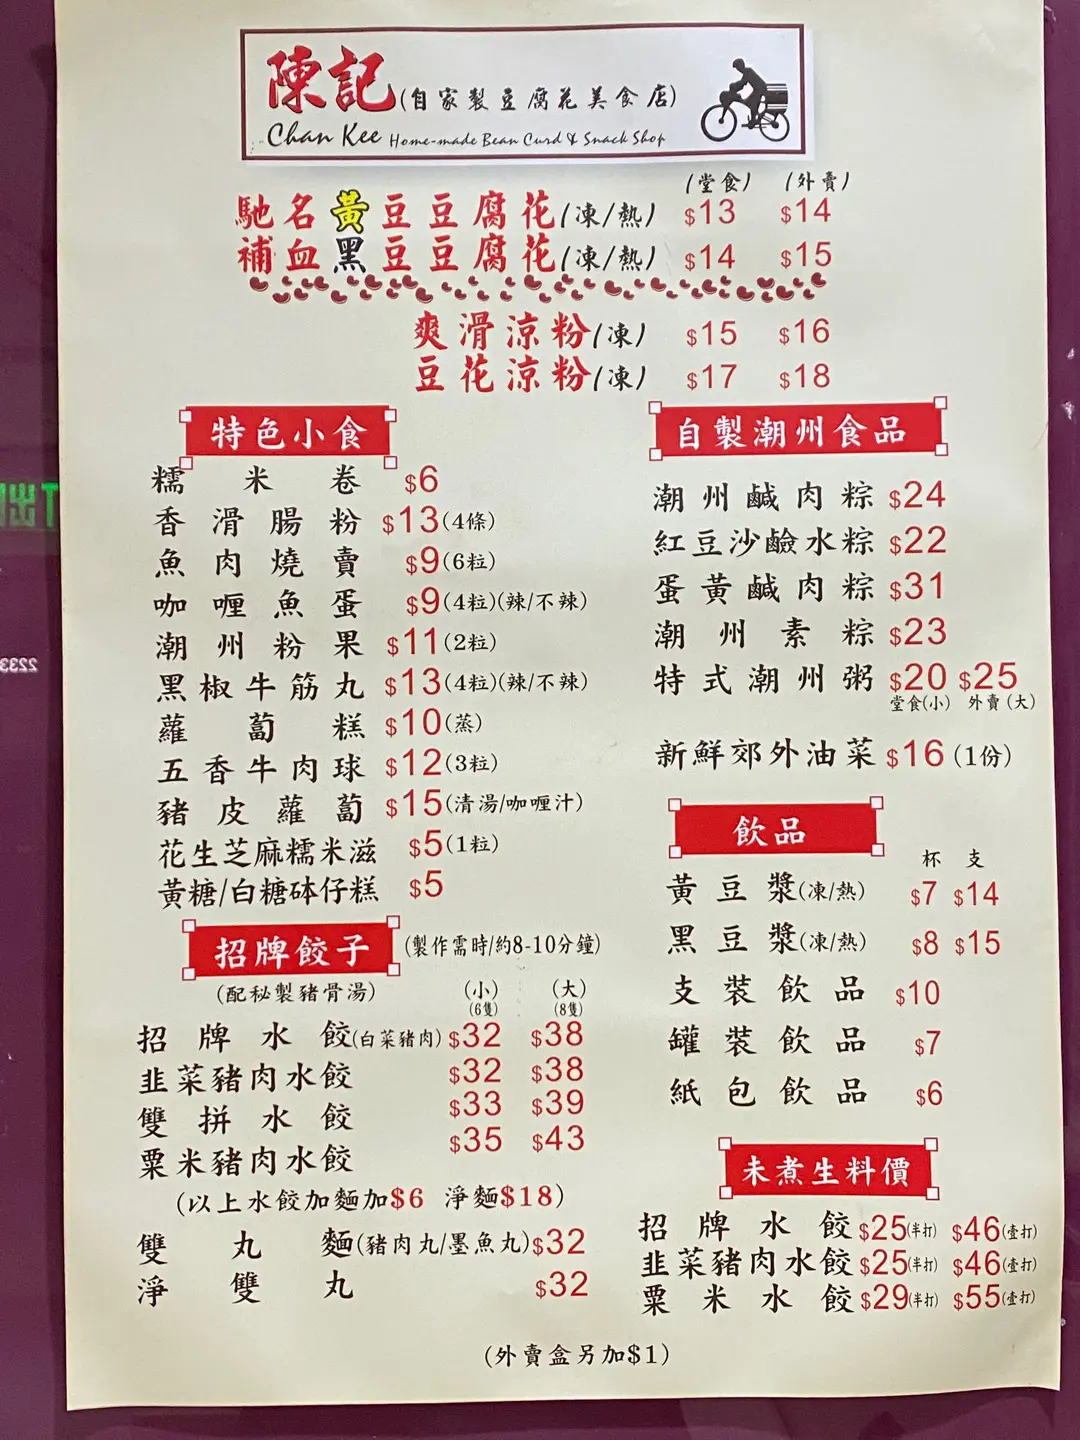 陳記(自家製豆腐花美食店)
Chan Kee Home-made Bean Curd & Snack Shop
(堂食) (外賣)
馳名黃豆豆腐花(凍/熱) $13 $14
補血黑豆豆腐花(凍/熱) $14 $15
爽滑涼粉(凍) $15 $16
豆花涼粉(凍) $17 $18
特色小食
糯米卷 $6
香滑腸粉 $13(4條)
魚肉燒賣 $9(6粒)
咖喱魚蛋 $9(4粒)(辣/不辣)
潮州粉果 $11(2粒)
黑椒牛筋丸 $13(4粒)(辣/不辣)
蘿蔔糕 $10(蒸)
五香牛肉球 $12(3粒)
豬皮蘿蔔 $15(清湯/咖喱汁)
花生芝麻糯米滋 $5(1粒)
黃糖/白糖砵仔糕 $5
招牌餃子 (製作需時/約8-10分鐘)
(配秘製豬骨湯) (小) (大)
(6隻) (8隻)
招牌水餃(白菜豬肉) $32 $38
韭菜豬肉水餃 $32 $38
雙拼水餃 $33 $39
粟米豬肉水餃 $35 $43
(以上水餃加麵加$6 淨麵$18)
雙丸麵(豬肉丸/墨魚丸)$32
淨雙丸 $32
自製潮州食品
潮州鹹肉粽 $24
紅豆沙鹼水粽 $22
蛋黃鹹肉粽 $31
潮州素粽 $23
特式潮州粥 $20 $25
堂食(小) 外賣(大)
新鮮郊外油菜 $16 (1份)
飲品
杯 支
黃豆漿(凍/熱) $7 $14
黑豆漿(凍/熱) $8 $15
支裝飲品 $10
罐裝飲品 $7
紙包飲品 $6
未煮生料價
招牌水餃 $25(半打) $46(壹打)
韭菜豬肉水餃 $25(半打) $46(壹打)
粟米水餃 $29(半打) $55(壹打)
(外賣盒另加$1)